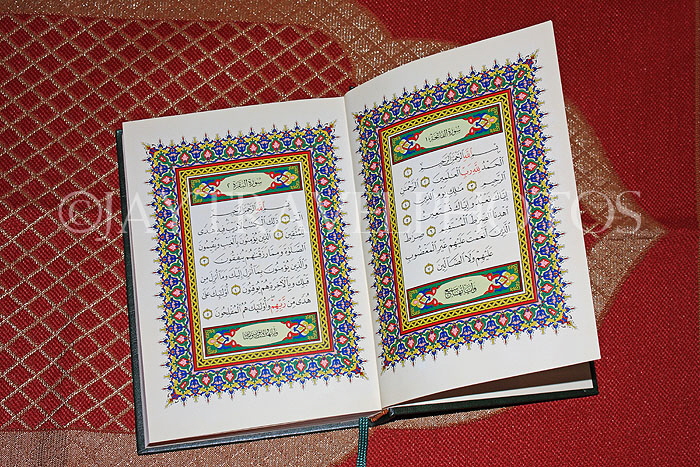 سورة الفاتحة ١
بسم الله الرحمن الرحيم
الحمد لله رب العلمين الرحمن
الرحيم ملك يوم الدين
إياك نعبد وإياك نستعين
اهدنا الصرط المستقيم صرط
الذين أنعمت عليهم غير المغضوب
عليهم ولا الضالين
وآياتها سبع
سورة البقرة ٢
بسم الله الرحمن الرحيم
ذلك الكتب لا ريب فيه هدى
للمتقين الذين يؤمنون بالغيب ويقيمون
الصلوة ومما رزقنهم ينفقون
والذين يؤمنون بما أنزل إليك وما أنزل من
قبلك وبالآخرة هم يوقنون أولئك على
هدى من ربهم وأولئك هم المفلحون
©JAYTRAVELPHOTOS